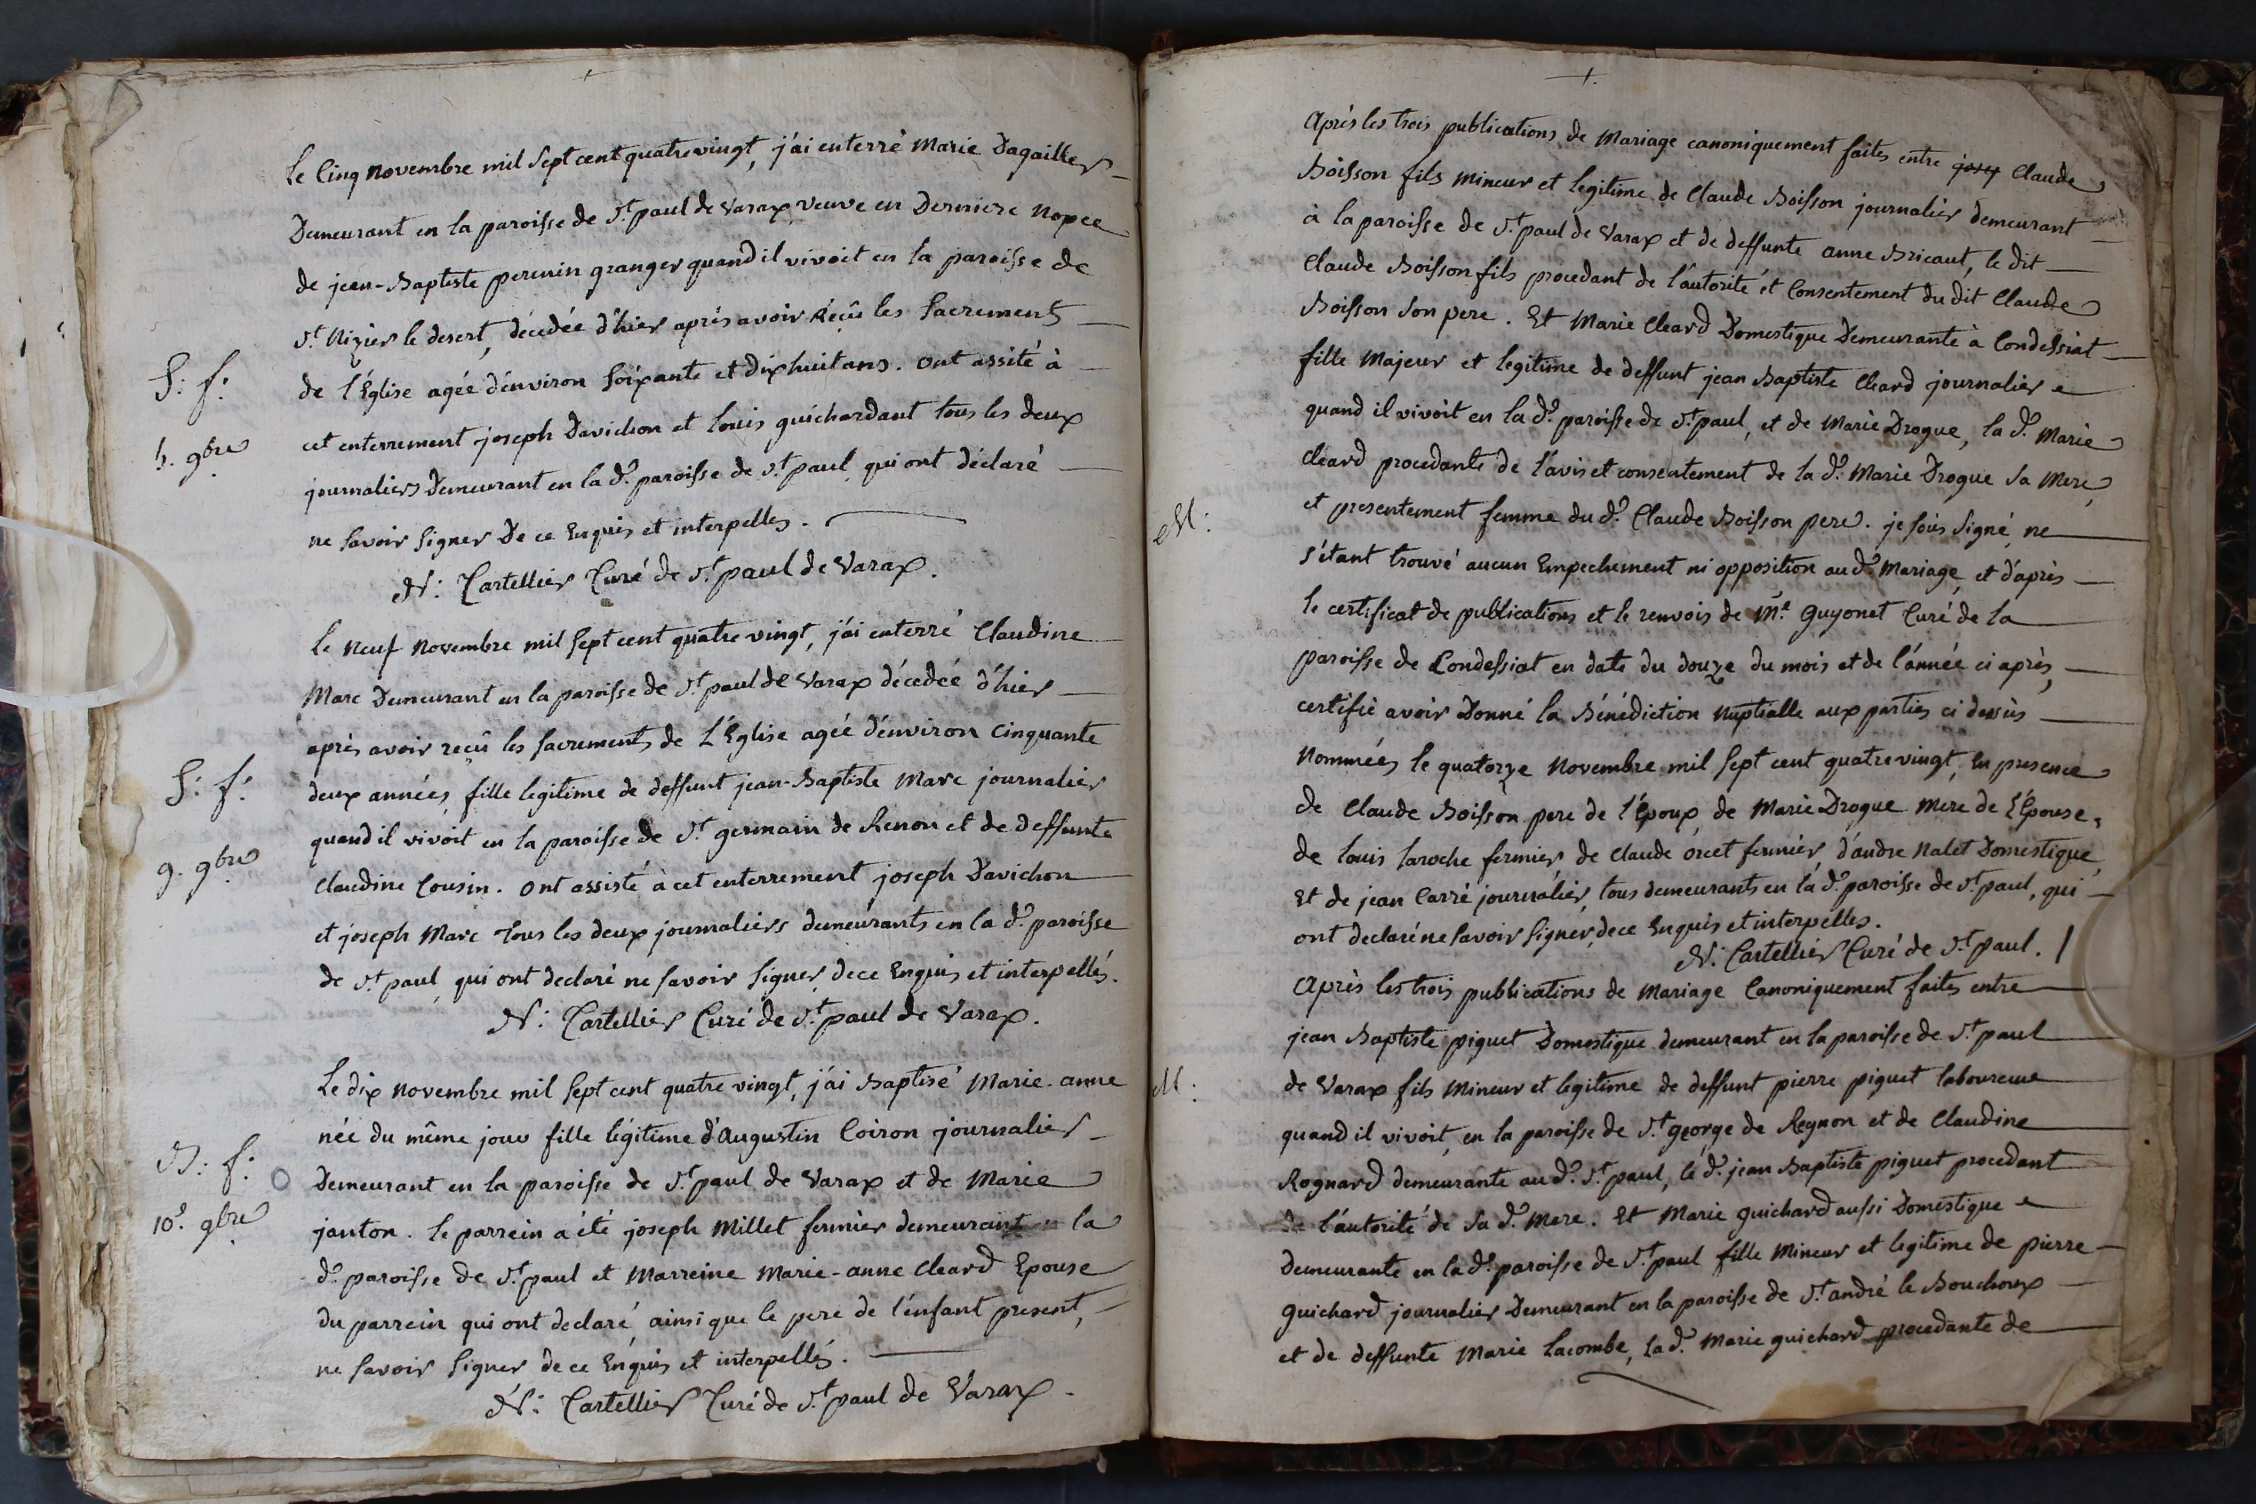 Le Cinq novembre mil sept cent quatre vingt, j'ai enterré Marie Dagailler
Demeurant en la paroisse de St. paul de Varax veuve en Derniere Nopce
de jean-Baptiste perenin granger quand il vivoit en la paroisse de
St. Nizier le desert, décedée d'hier après avoir Reçû les Sacrements
S: f: de l'Eglise agée d'environ soixante et dixhuit ans. Ont assité à
5. 9bre cet enterrement joseph Davichon et louis guichardant tous les deux
journaliers Demeurant en la de. paroisse de St. paul qui ont déclaré
ne savoir signer De ce Enquis et interpelles.
N: Cartellier Curé de St. paul de Varax.
Le neuf novembre mil sept cent quatre vingt, j'ai enterré Claudine
Marc Demeurant en la paroisse de St. paul de Varax décedeé d'hier
après avoir reçû les sacrements de L'Eglise agée d'environ Cinquante
S: f: deux années fille legitime de deffunt jean-Baptiste Marc journalier
quand il vivoit en la paroisse de St germain de Renon et de deffunte
9. 9bre Claudine Cousin. Ont assisté à cet enterrement joseph Davichon
et joseph Marc tous les deux journaliers demeurants en la de. paroisse
de St paul qui ont declaré ne savoir signer de ce Enquis et interpellés.
N: Cartellier Curé de St. paul de Varax.
Le dix novembre mil sept cent quatre vingt, j'ai Baptisé Marie-anne
née du même jour fille légitime d'Augustin Coiron journalier
B: f: Demeurant en la paroisse de St. paul de Varax et de Marie
10e. 9bre janton. le parrein a été joseph Millet fermier demeurant en la
de. paroisse de St. paul et Marreine Marie-anne Cleard Epouse
du parrein qui ont declaré, ainsi que le pere de l'enfant present,
ne savoir signer de ce Enquis et interpellés.
N: Cartellier Curé de St. paul de Varax.
Après les trois publications de Mariage canoniquement faites entre josep Claude
Boisson fils Mineur et legitime de Claude Boisson journalier demeurant
à la paroisse de St. paul de Varax et de deffunte anne Bricaut, le dit
Claude Boisson fils procedant de l'autorité et Consentement du dit Claude
Boisson son pere. Et Marie Cleard Domestique Demeurante à Condessiat
fille Majeur et legitime de deffunt jean Baptiste Cleard journalier
quand il vivoit en la de. paroisse de St. paul, et de Marie Drogue, la de. Marie
Cleard procedante de l'avis et consentement de la de. Marie Drogue sa Mere,
M: et presentement femme du d. Claude Boisson pere. je sois signé ne
s'étant trouvé aucun Empechement ni opposition au d. Mariage, et d'après
le certificat de publications et le renvois de Mr. guyonet Curé de la
paroisse de Condessiat en date du douze du mois et de l'année ci après,
certifie avoir Donné la Bénédiction Nuptialle aux parties ci dessus
Nommées le quatorze novembre mil sept cent quatre vingt, En presence
de Claude Boisson pere de l'Epoux, de Marie Drogue mere de l'Epouse,
de louis laroche fermier, de Claude orcet fermier, d'andre Nalet Domestique,
Et de jean Carré journalier, tous demeurants en la de. paroisse de St. paul, qui
ont declaré ne savoir signer, de ce Enquis et interpelles.
N: Cartellier Curé de St. paul.
Après les trois publications de Mariage Canoniquement faites entre
jean Baptiste piguet Domestique demeurant en la paroisse de St. paul
M: de Varax fils Mineur et legitime de deffunt pierre piguet laboureur
quand il vivoit, en la paroisse de St. george de Reynon et de Claudine
Rognard demeurante au d. St. paul, le d. jean Baptiste piguet procedant
De l'autorité de sa de. Mere. Et Marie guichard aussi Domestique
Demeurante en la de. paroisse de St. paul fille Mineur et legitime de pierre
guichard journalier Demeurant en la paroisse de St. andré le Bouchoux
et de deffunte Marie lacombe, la de. Marie guichard procedante de